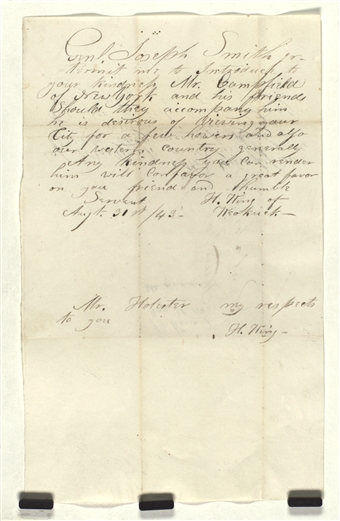 Genl. Joseph Smith
permit me to Introduce to
your kindness Mr. Campfield
of New York and his friends
Should they accompany him
he is desirous of Viewing your
City for a few howers and also
our western country generally
Any kindness you can render
him will confer a great favor
on you friend and humble
Servent H. Wing of
Augt. 31st /43 -
Mr. Holister my respects
to you
H. Wing -